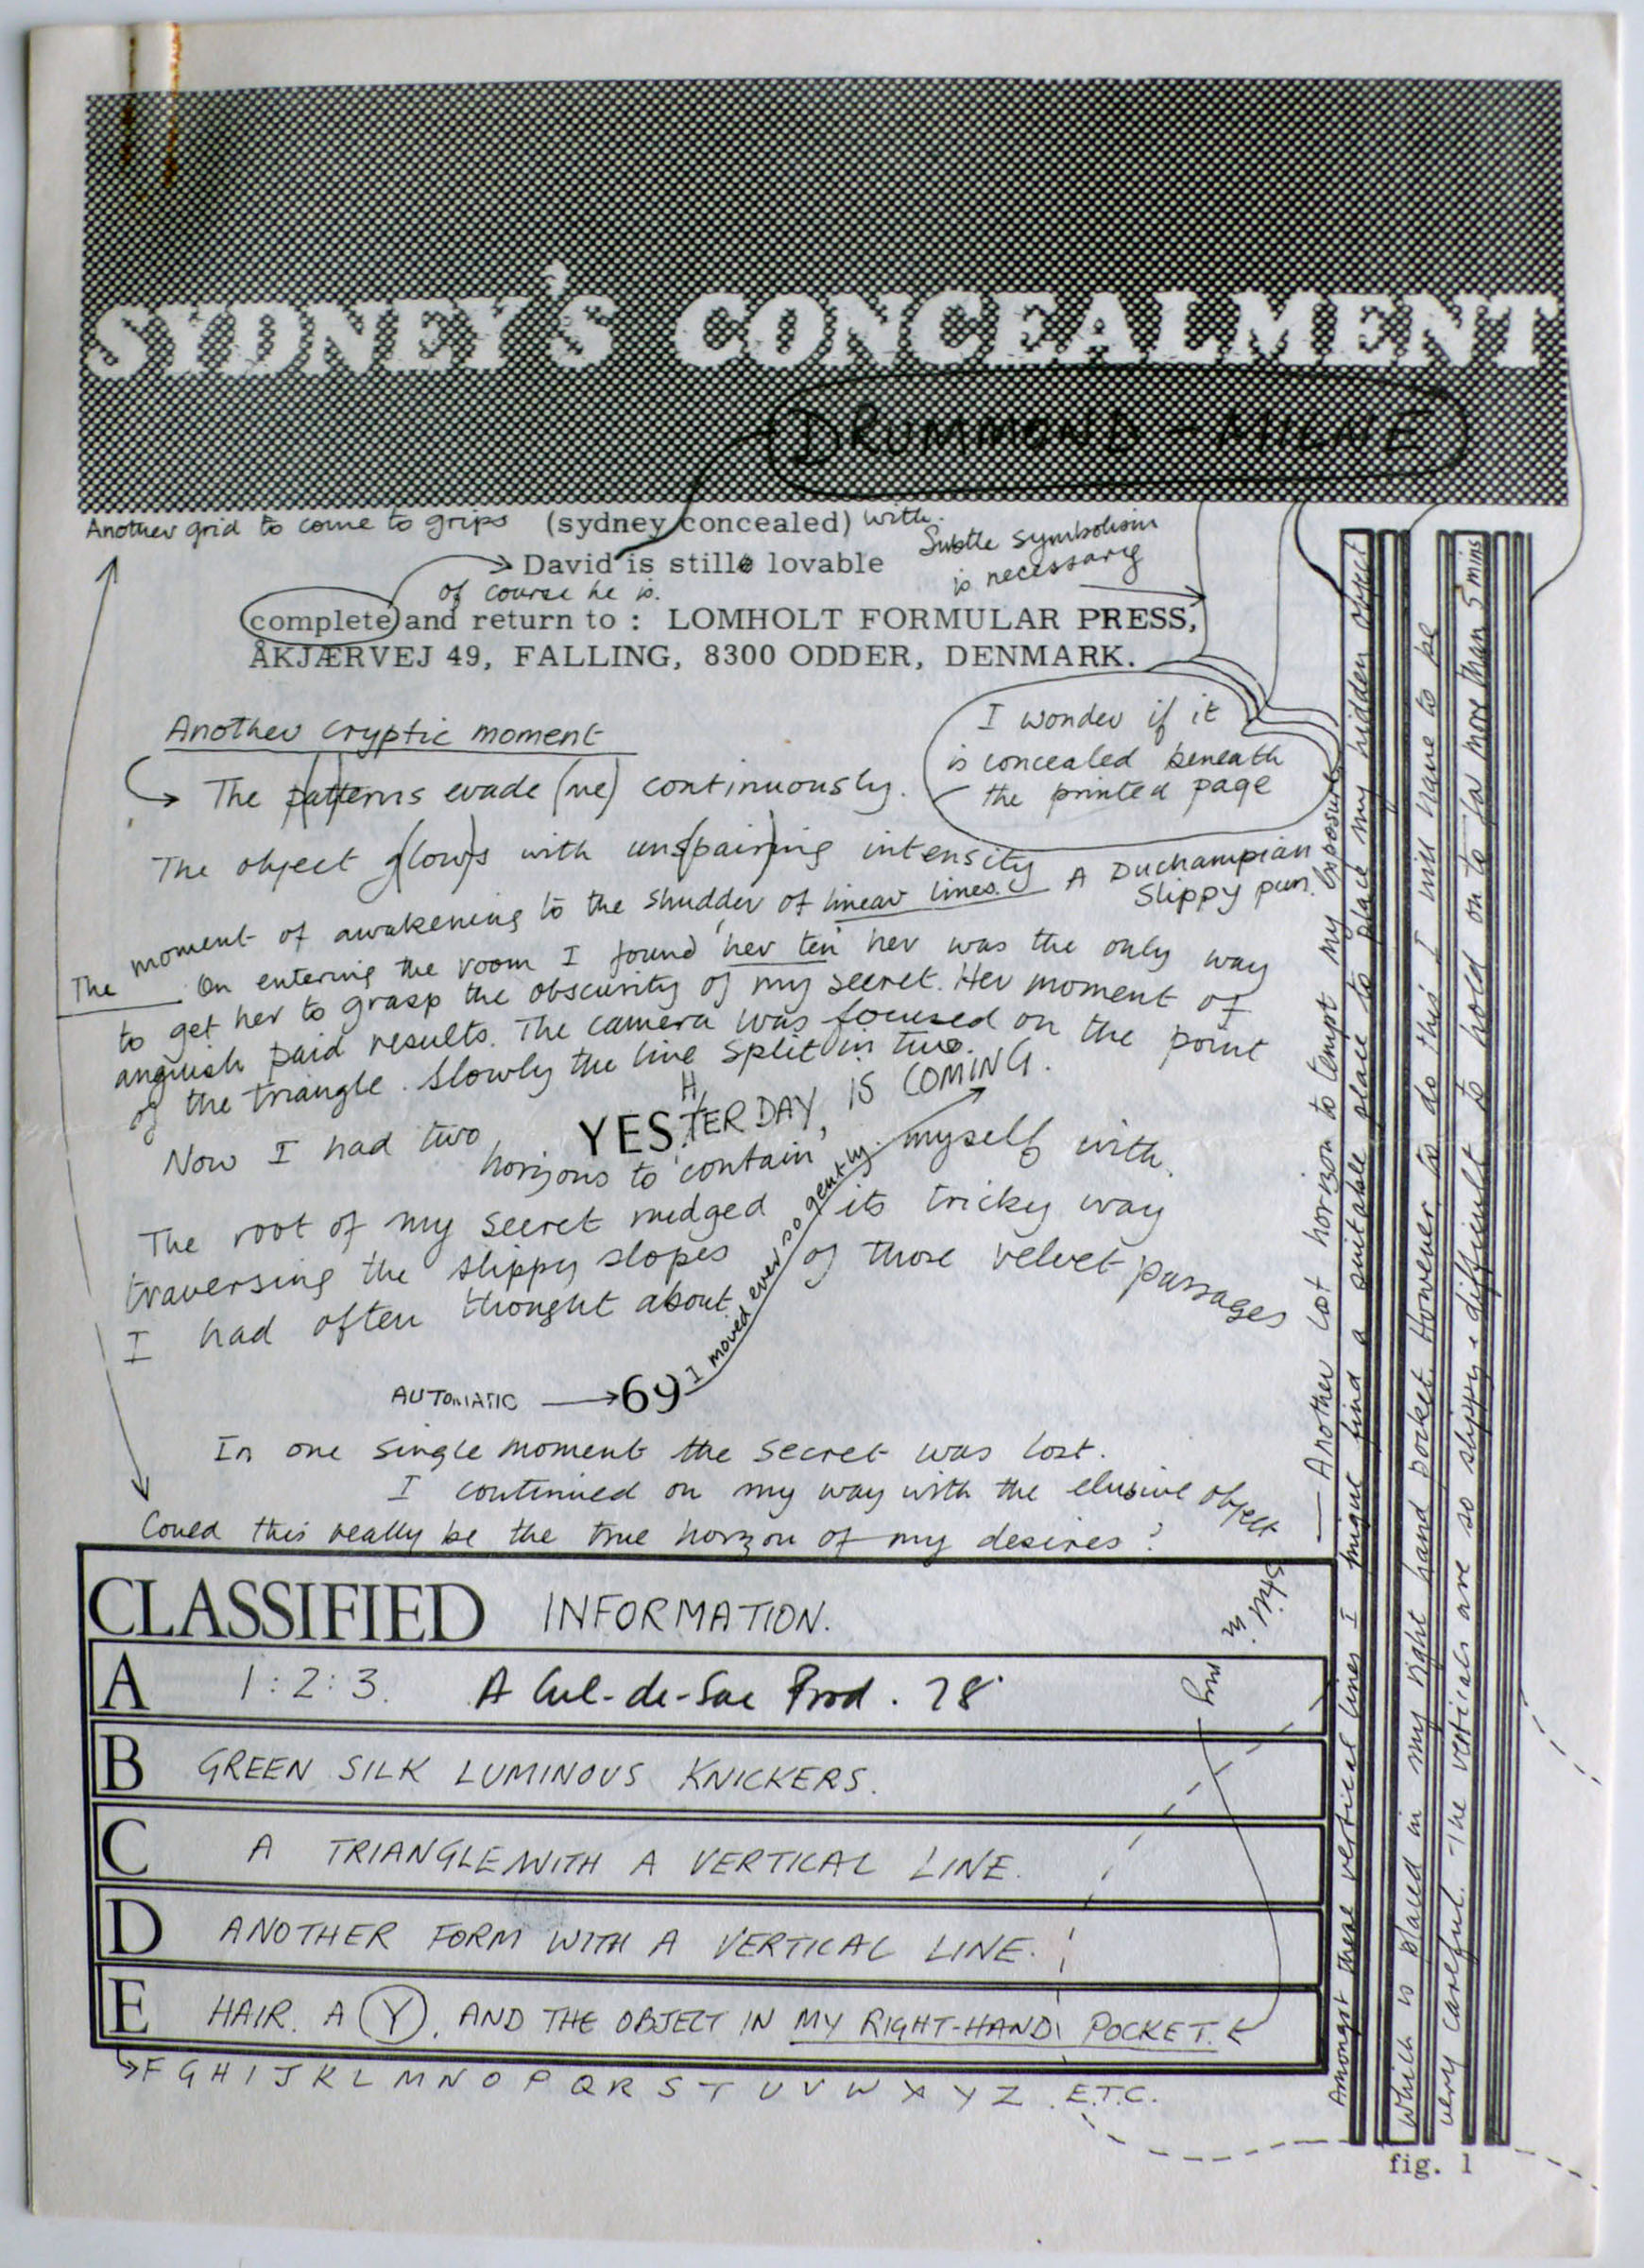 SYDNEY'S CONCEALMENT
DRUMMOND - MILNE
Another grid to come to grips (sydney concealed) with.
David is still lovable
Subtle symbolism
is necessary
of course he is.
complete and return to : LOMHOLT FORMULAR PRESS,
ÅKJÆRVEJ 49, FALLING, 8300 ODDER, DENMARK.
Another cryptic moment
The p(att)erns evade (me) continuously.
I wonder if it
is concealed beneath
the printed page
The object g(low)s with uns(pair)ing intensity
A Duchampian
Slippy pun.
The moment of awakening to the shudder of linear lines.
On entering the room I found 'her ten' her was the only way
to get her to grasp the obscurity of my secret. Her moment of
anguish paid results. The camera was focused on the point
of the triangle. Slowly the line split in two.
H
YESTERDAY, IS COMING.
Now I had two horizons to 'contain' myself with.
The root of my secret nudged its tricky way
traversing the slippy slopes of those velvet passages
I had often thought about
AUTOMATIC → 69 I moved ever so gently
In one single moment the secret was lost.
I continued on my way with the elusive object
still in my
Could this really be the true horizon of my desires?
CLASSIFIED INFORMATION.
A 1:2:3. A Cul-de-Sac Prod. 78'
B GREEN SILK LUMINOUS KNICKERS.
C A TRIANGLE WITH A VERTICAL LINE.
D ANOTHER FORM WITH A VERTICAL LINE.
E HAIR. A Y. AND THE OBJECT IN MY RIGHT-HAND POCKET.
F G H I J K L M N O P Q R S T U V W X Y Z . E.T.C.
— Another lost horizon to tempt my exposure
Amongst these vertical lines I might find a suitable place to place my hidden object
which is placed in my right hand pocket. However to do this I will have to be
very careful. The verticals are so slippy + difficult to hold on to for more than 5 mins
fig. 1